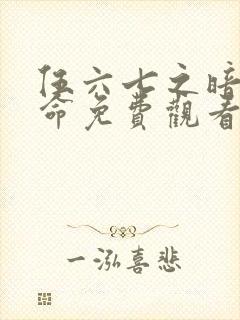 伍六七之暗
命免費觀看
一泓喜悲